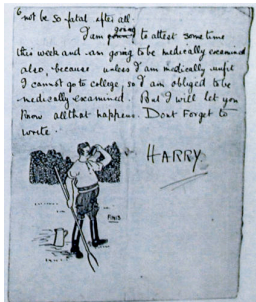 6 not be so fatal after all.
I am going to attest some time
this week and am going to be medically examined
also, because unless I am medically unfit
I cannot go to college, so I am obliged to be
medically examined. But I will let you
know all that happens. Dont Forget to
write.
HARRY
FINIS